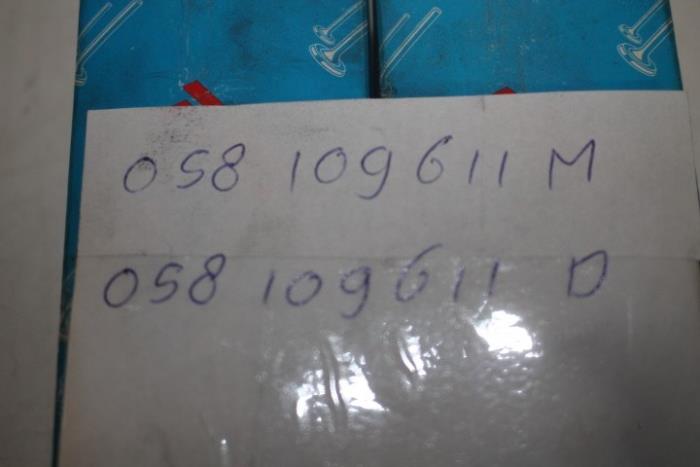 058 109611 M
058 109611 D